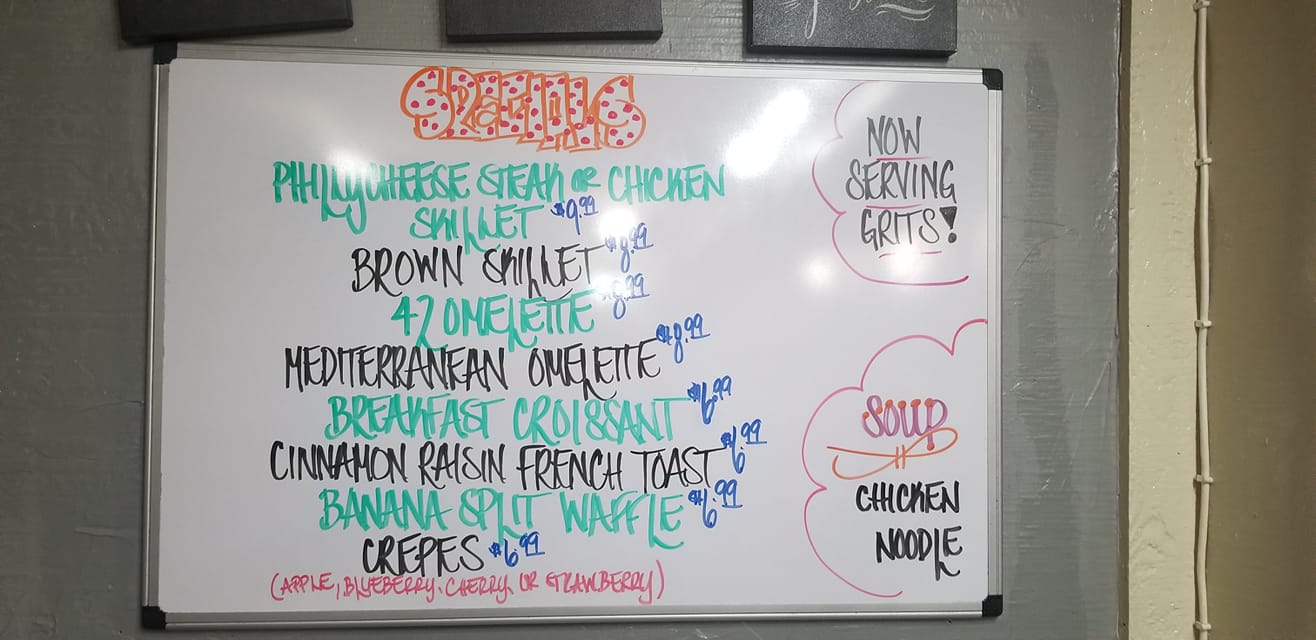 SPECIALS
PHILLY CHEESE STEAK OR CHICKEN
SKILLET $9.99
BROWN SKILLET $8.99
42 OMELETTE $8.99
MEDITERRANEAN OMELETTE $8.99
BREAKFAST CROISSANT $6.99
CINNAMON RAISIN FRENCH TOAST $6.99
BANANA SPLIT WAFFLE $6.99
CREPES $6.99
(APPLE, BLUEBERRY, CHERRY, OR STRAWBERRY)
NOW
SERVING
GRITS!
SOUP
CHICKEN
NOODLE